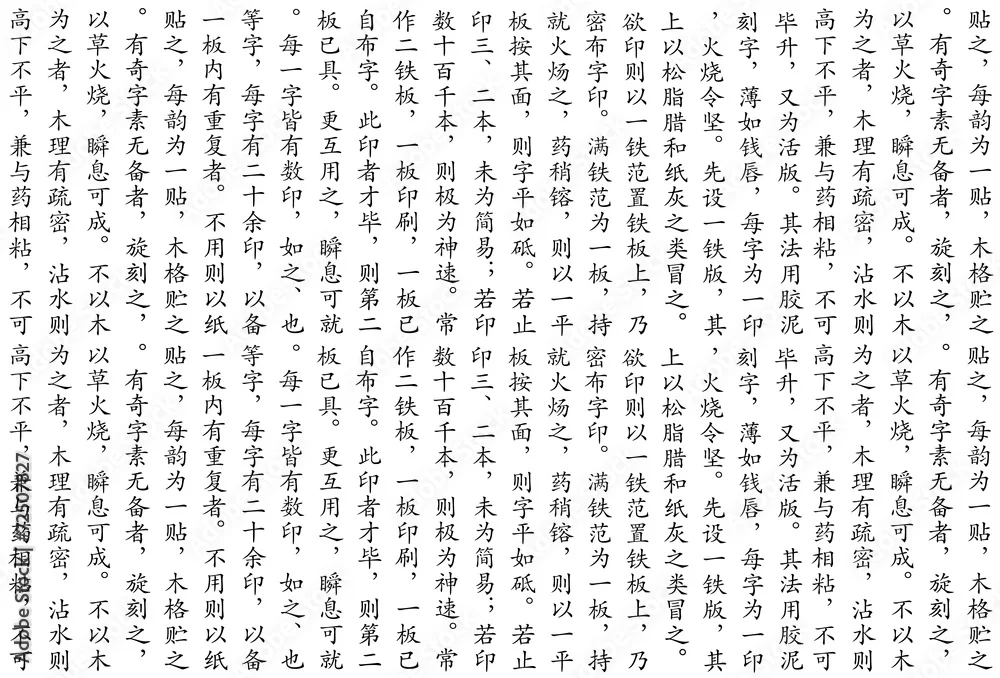 贴之，每韵为一贴，木格贮之贴之，每韵为一贴，木格贮之
。有奇字素无备者，旋刻之，。有奇字素无备者，旋刻之，
以草火烧，瞬息可成。不以木以草火烧，瞬息可成。不以木
为之者，木理有疏密，沾水则为之者，木理有疏密，沾水则
高下不平，兼与药相粘，不可高下不平，兼与药相粘，不可
毕升，又为活版。其法用胶泥毕升，又为活版。其法用胶泥
刻字，薄如钱唇，每字为一印刻字，薄如钱唇，每字为一印
，火烧令坚。先设一铁版，其，火烧令坚。先设一铁版，其
上以松脂腊和纸灰之类冒之。上以松脂腊和纸灰之类冒之。
欲印则以一铁范置铁板上，乃欲印则以一铁范置铁板上，乃
密布字印。满铁范为一板，持密布字印。满铁范为一板，持
就火炀之，药稍镕，则以一平就火炀之，药稍镕，则以一平
板按其面，则字平如砥。若止板按其面，则字平如砥。若止
印三、二本，未为简易；若印印三、二本，未为简易；若印
数十百千本，则极为神速。常数十百千本，则极为神速。常
作二铁板，一板印刷，一板已作二铁板，一板印刷，一板已
自布字。此印者才毕，则第二自布字。此印者才毕，则第二
板已具。更互用之，瞬息可就板已具。更互用之，瞬息可就
。每一字皆有数印，如之、也。每一字皆有数印，如之、也
等字，每字有二十余印，以备等字，每字有二十余印，以备
一板内有重复者。不用则以纸一板内有重复者。不用则以纸
贴之，每韵为一贴，木格贮之贴之，每韵为一贴，木格贮之
。有奇字素无备者，旋刻之，。有奇字素无备者，旋刻之，
以草火烧，瞬息可成。不以木以草火烧，瞬息可成。不以木
为之者，木理有疏密，沾水则为之者，木理有疏密，沾水则
高下不平，兼与药相粘，不可高下不平，兼与药相粘，不可
Adobe Stock